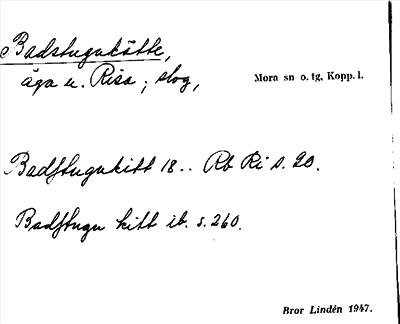 Badstugukätte,
äga u. Risa; skog,
Mora sn o. tg, Kopp. l.
Badstugukitt 18.. Rb Ri s. 20.
Badstugu kitt ib. s. 260.
Bror Lindén 1947.